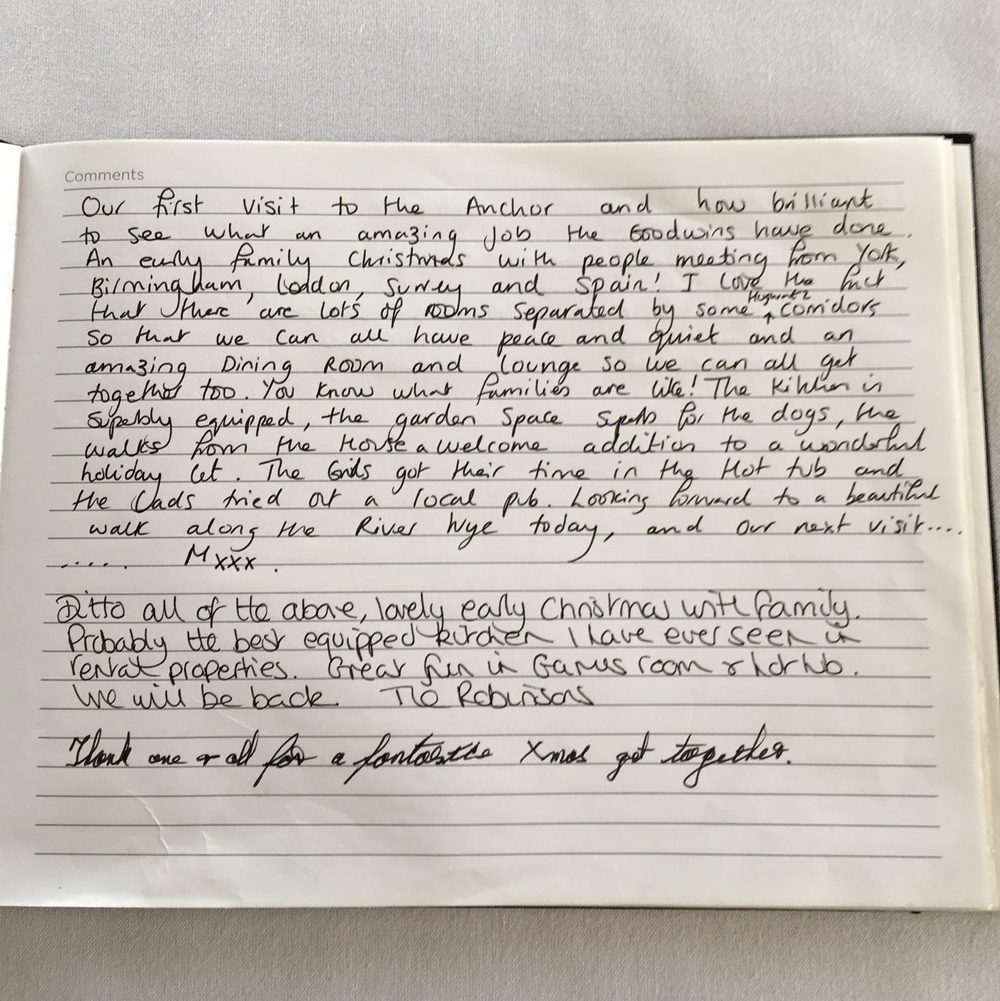 Comments
Our first visit to the Anchor and how brilliant
to see what an amazing job the Goodwins have done.
An early family Christmas with people meeting from York,
Birmingham, London, Surrey and Spain! I love the fact
that there are lots of rooms separated by some corridors
so that we can all have peace and quiet and an
amazing Dining Room and lounge so we can all get
together too. You know what families are like! The Kitchen is
superbly equipped, the garden space superb for the dogs, the
walks from the House a welcome addition to a wonderful
holiday let. The Girls got their time in the Hot tub and
the Lads tried out a local pub. Looking forward to a beautiful
walk along the River Wye today, and our next visit....
..... M xxx.
Ditto all of the above, lovely early Christmas with family.
Probably the best equipped kitchen I have ever seen in
rental properties. Great fun in Games room & hot tub.
We will be back. The Robinsons
Thank one & all for a fantastic Xmas get together.